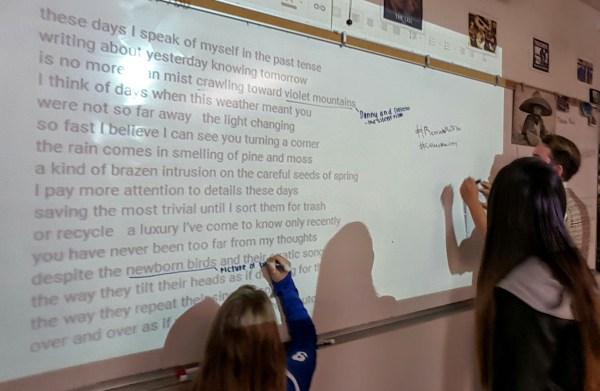 these days I speak of myself in the past tense
writing about yesterday knowing tomorrow
is no more an mist crawling toward violet mountains
I think of days when this weather meant you
were not so far away the light changing
so fast I believe I can see you turning a corner
the rain comes in smelling of pine and moss
a kind of brazen intrusion on the careful seeds of spring
I pay more attention to details these days
saving the most trivial until I sort them for trash
or recycle a luxury I've come to know only recently
you have never been too far from my thoughts
despite the newborn birds and their
the way they tilt their heads as if for
the way they repeat their
over and over as if
Danny and
picture of